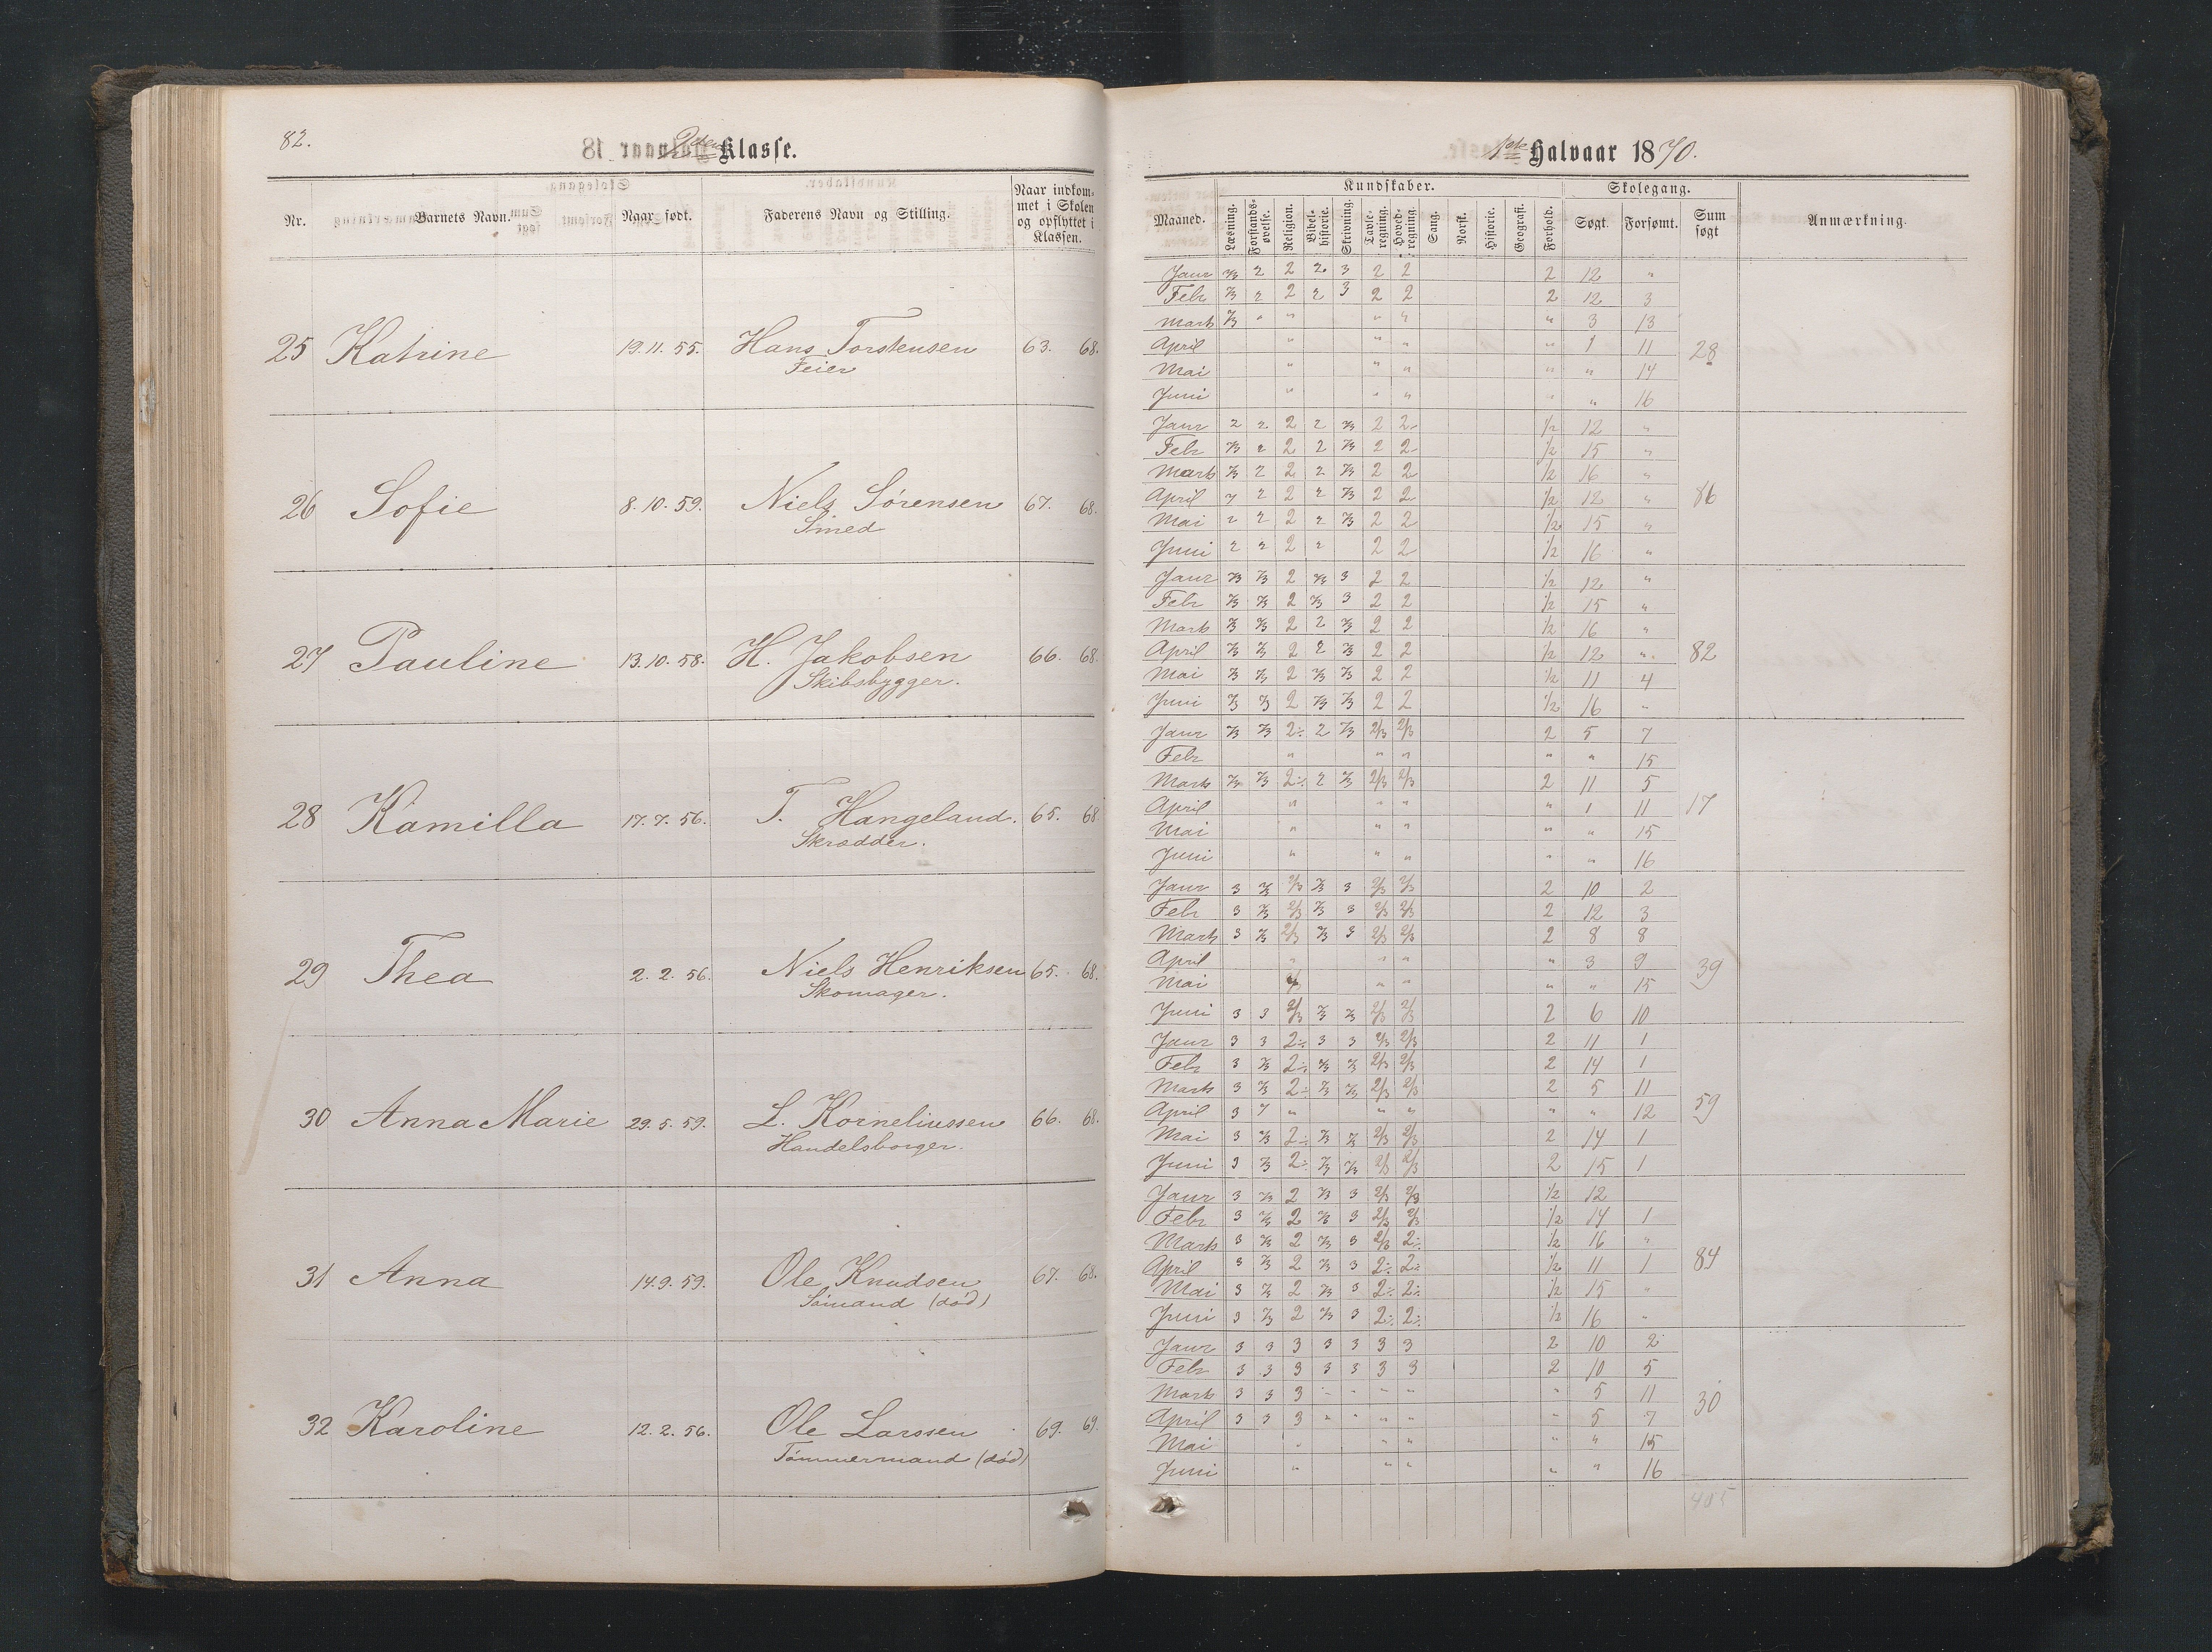 82.
2den Klasse.
Nr. Barnets Navn. Naar født. Faderens Navn og Stilling. Naar indkommet i Skolen og opflyttet i Klassen.
25 Katrine 19.11.55. Hans Torstensen 63. 68.
Feier
26 Sofie 8.10.59. Niels Sørensen 67. 68.
Smed
27 Pauline 13.10.58. H. Jakobsen 66. 68.
Skibsbygger.
28 Kamilla 17.7.56. T. Hangeland. 65. 68
Skrædder.
29 Thea 2.2.56. Niels Henriksen 65. 68.
Skomager.
30 Anna Marie 29.5.59. L. Korneliussen 66. 68.
Handelsborger.
31 Anna 14.9.59. Ole Knudsen 67. 68.
Sømand (død)
32 Karoline 12.2.56. Ole Larssen 69. 69.
Tømmermand (død)
1ste Halvaar 1870.
Kundskaber. Skolegang.
Maaned. Læsning. Forstandsøvelse. Religion. Bibelhistorie. Skrivning. Tavleregning. Hovedregning. Sang. Norsk. Historie. Geografi. Forhold. Søgt. Forsømt. Sum søgt Anmærkning.
Janr 2/3 2 2 2 3 2 2 2 12 "
Febr 2/3 2 2 2 3 2 2 2 12 3
Marts 2/3 " " " " " 3 13
April " " " " 1 11 28
Mai " " " " " 14
Juni " " " " " 16
Janr 2 2 2 2 2/3 2 2 1/2 12 "
Febr 2/3 2 2 2 2/3 2 2 1/2 15 "
Marts 2/3 2 2 2 2/3 2 2 1/2 16 "
April 2 2 2 2/3 2 2 1/2 12 " 86
Mai 2 2 2 2 2/3 2 2 1/2 15 "
Juni 2 2 2 2 2 2 1/2 16 "
Janr 2/3 2/3 2 2/3 3 2 2 1/2 12 "
Febr 2/3 2/3 2 2/3 3 2 2 1/2 15 "
Marts 2/3 2/3 2 2 2/3 2 2 1/2 16 "
April 2/3 2/3 2 2 2/3 2 2 1/2 12 " 82
Mai 2/3 2/3 2 2/3 2/3 2 2 1/2 11 4
Juni 2/3 2/3 2 2/3 2/3 2 2 1/2 16 "
Janr 2/3 2/3 2÷ 2 2/3 2/3 2/3 2 5 7
Febr " " " " " 15
Marts 2/3 2/3 2÷ 2 2/3 2/3 2/3 2 11 5
April " " " " 1 11 17
Mai " " " " " 15
Juni " " " " " 16
Janr 3 2/3 2/3 2/3 3 2/3 2/3 2 10 2
Febr 3 2/3 2/3 2/3 3 2/3 2/3 2 12 3
Marts 3 2/3 2/3 2/3 3 2/3 2/3 2 8 8
April " " " " 3 9 39
Mai " " " " 15
Juni 3 3 2/3 2/3 2/3 2/3 2/3 2 6 10
Janr 3 3 2÷ 3 3 2/3 2/3 2 11 1
Febr 3 2/3 2÷ 2/3 2/3 2/3 2/3 2 14 1
Marts 3 2/3 2÷ 2/3 2/3 2/3 2/3 2 5 11
April 3 " " " " " 12 59
Mai 3 2/3 2÷ 2/3 2/3 2/3 2/3 2 14 1
Juni 3 2/3 2÷ 2/3 2/3 2/3 2/3 2 15 1
Janr 3 2/3 2 2/3 3 2/3 2/3 1/2 12
Febr 3 2/3 2 2/3 3 2/3 2/3 1/2 14 1
Marts 3 2/3 2 2/3 3 2/3 2÷ 1/2 16 "
April 3 2/3 2 2/3 3 2÷ 2÷ 1/2 11 1 84
Mai 3 2/3 2 2/3 3 2÷ 2÷ 1/2 15 "
Juni 3 2/3 2 2/3 3 2÷ 2÷ 1/2 16 "
Janr 3 3 3 3 3 3 3 2 10 2
Febr 3 3 3 3 3 3 3 2 10 5
Marts 3 3 3 " " " " " 5 11
April 3 3 3 " " " " " 5 7 30
Mai " " " " " 15
Juni " " " " " 16